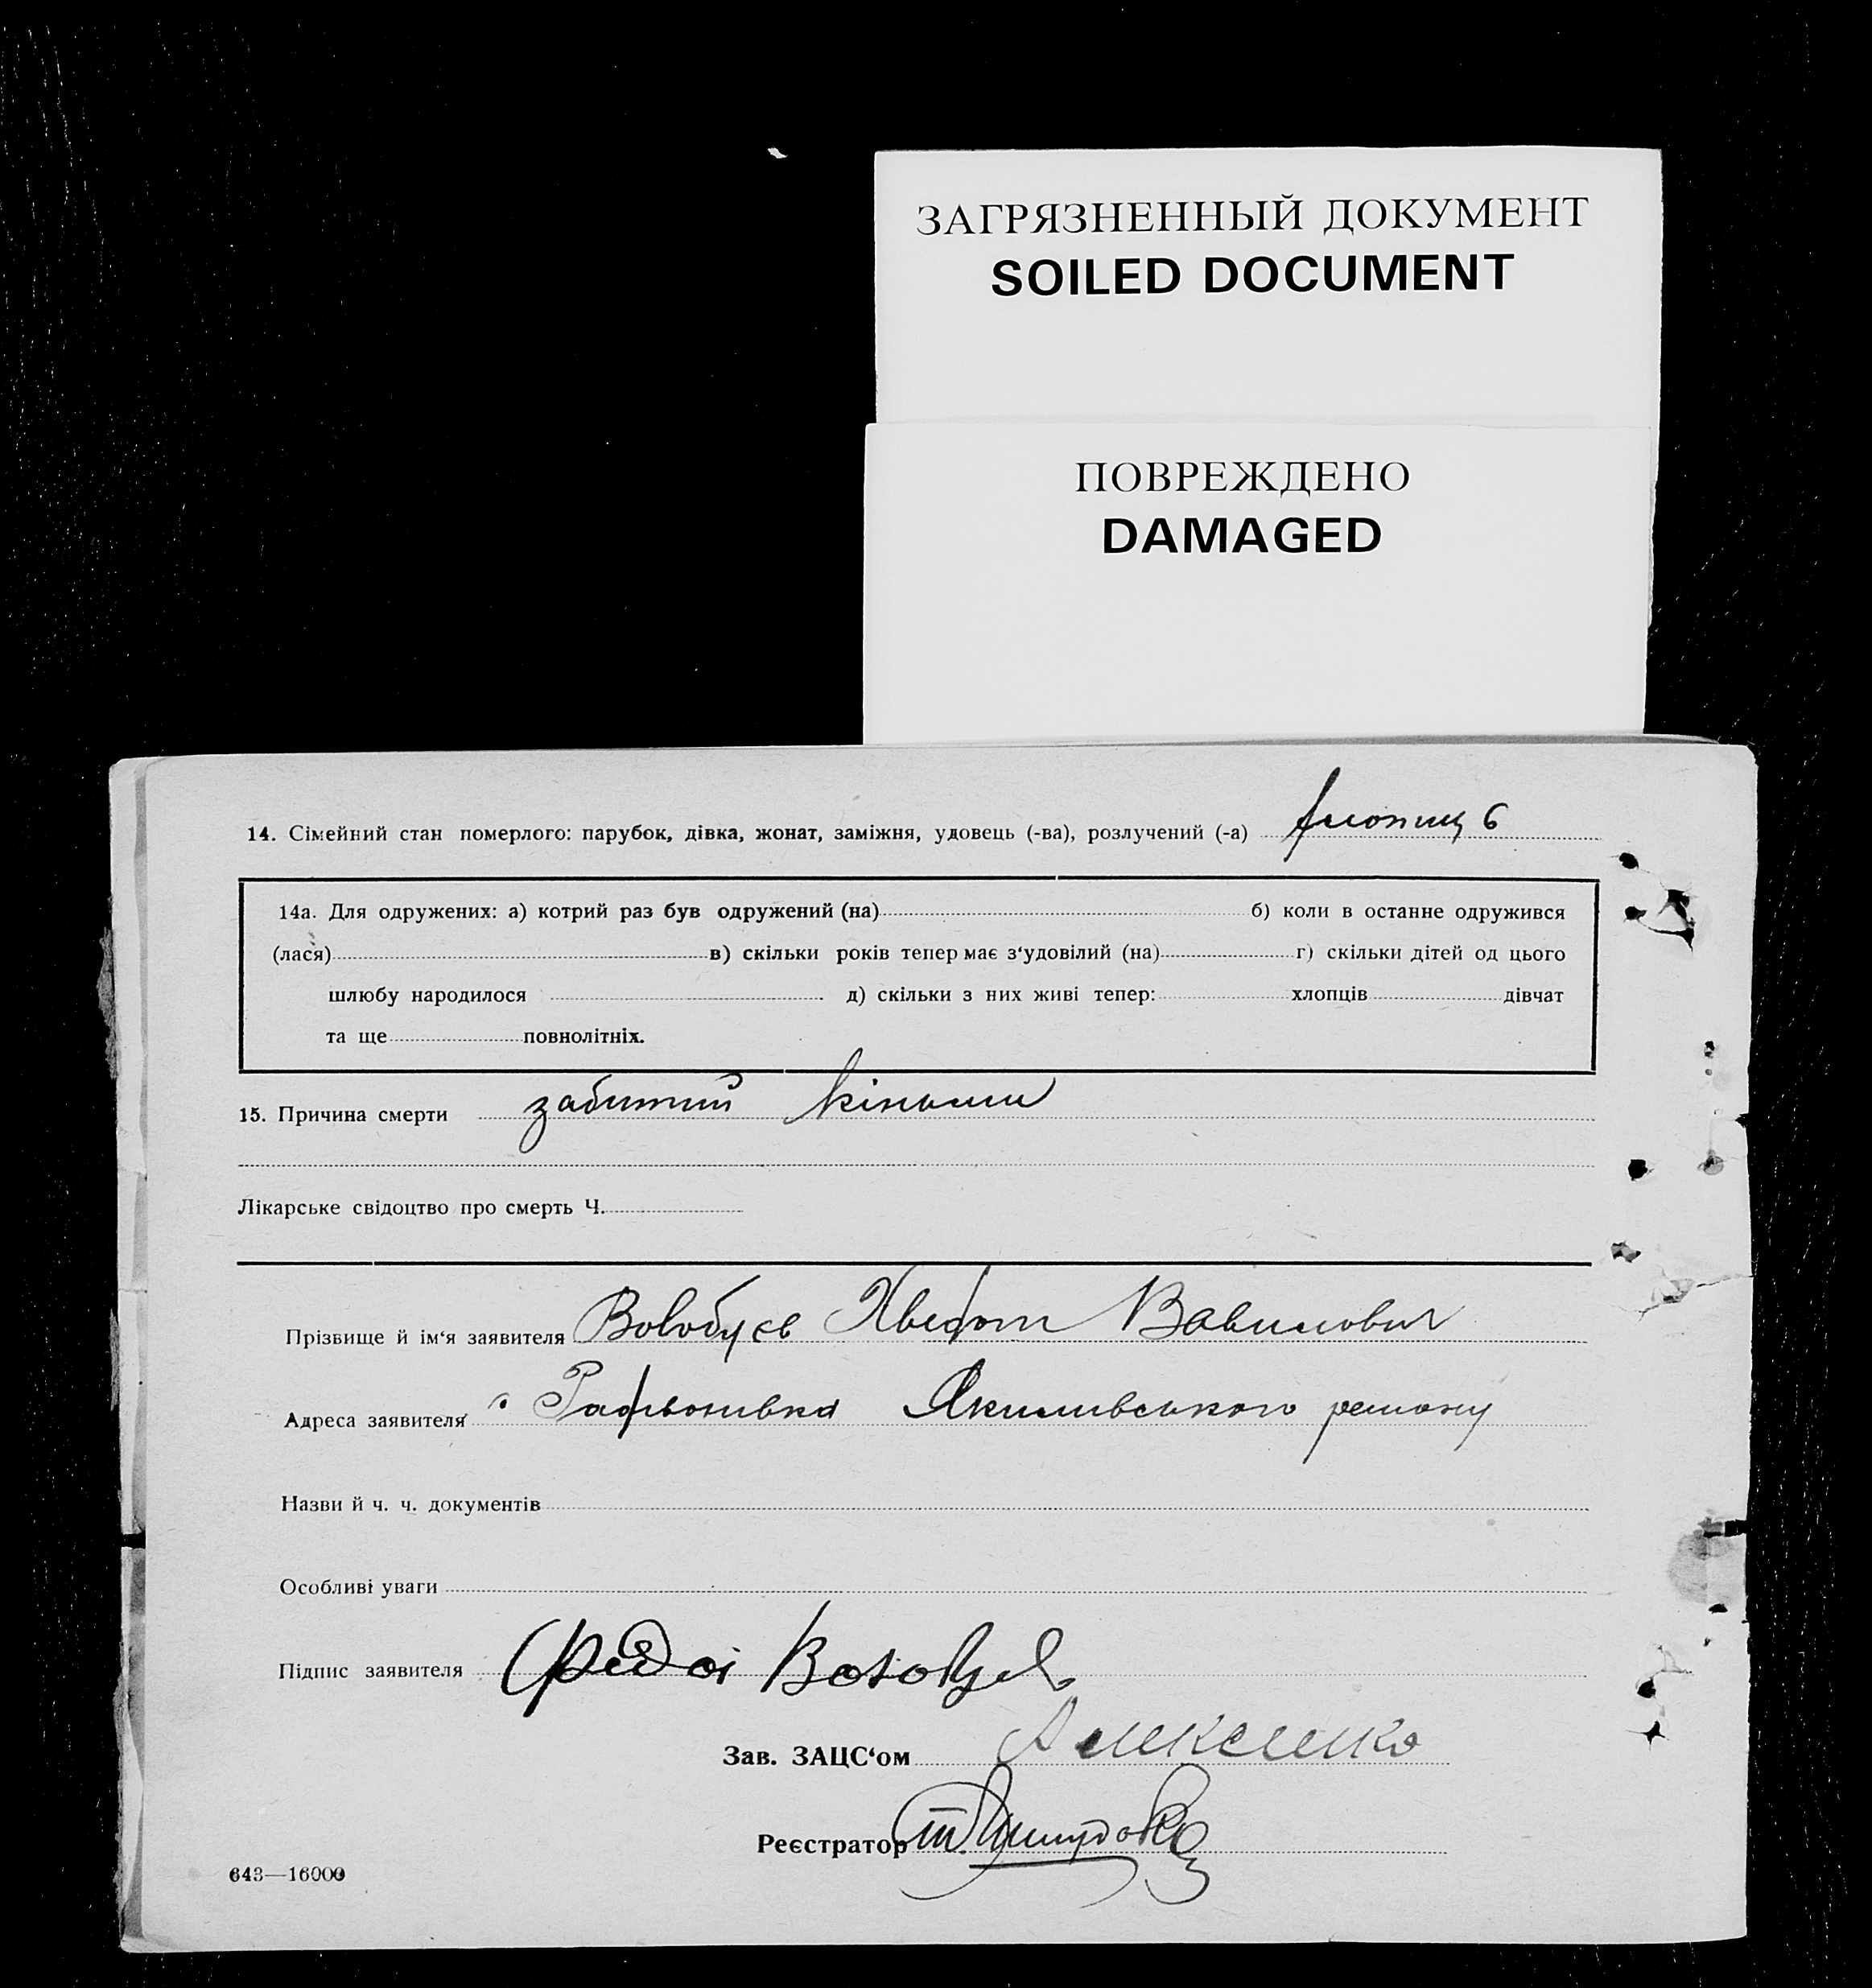 ЗАГРЯЗНЕННЫЙ ДОКУМЕНТ
SOILED DOCUMENT
ПОВРЕЖДЕНО
DAMAGED
14. Сімейний стан померлого: парубок, дівка, жонат, заміжня, удовець (-ва), розлучений (-а)
14а. Для одружених: а) котрий раз був одружений (на) б) коли в останне одружився
(лася) в) скільки років тепер має з‘удовілий (на) г) скільки дітей од цього
шлюбу народилося д) скільки з них живі тепер: хлопців дівчат
та ще повнолітніх.
15. Причина смерти забитий кіньми
Лікарське свідоцтво про смерть Ч.
Прізвище й ім‘я заявителя Хведот Вавилович
Адреса заявителя Якимівського району
Назви й ч. ч. документів
Особливі уваги
Підпис заявителя
Зав. ЗАЦС‘ом
Реєстратор
643—16000